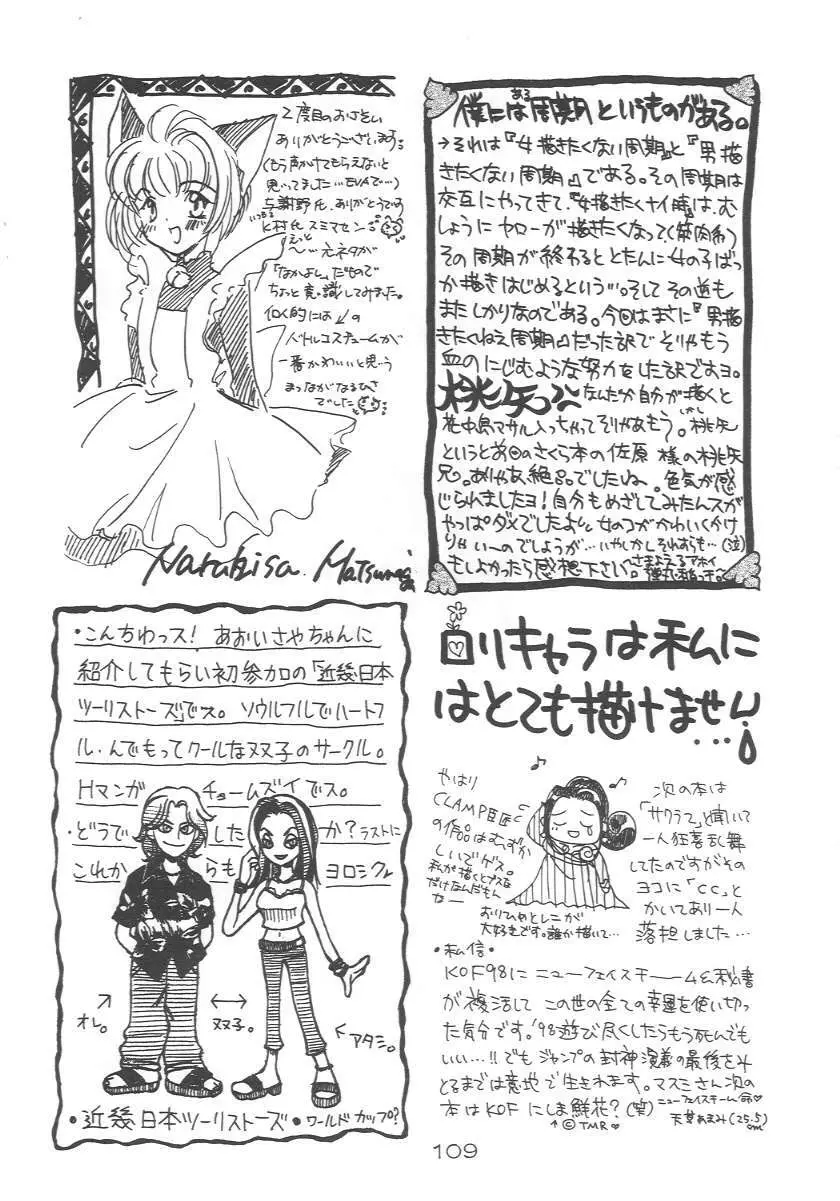 2度目のおさそい
ありがとうございます。
(もう声かけてもらえないと
思ってました…EVAで…)
与謝野氏、ありがとうです
いつも
木村氏スミマセン
えっと
〜…元ネタが
「なかよし」だもので
ちょっと意識してみました。
個人的には↙の
バトルコスチュームが
一番かわいいと思う
まつながなるひさ
でした
Naruhisa. Matsunaga
僕には周期というものがある。
ある
→それは『女描きたくない周期』と『男描
きたくない周期』である。その周期は
交互にやってきて、『女描きたくナイ時』は、む
しょうにヤローが描きたくなって(筋肉希)
その周期が終わるととたんに女の子ばっ
か描きはじめるという…。そしてその逆も
またしかりなのである。今回はまさに『男描
きたくねえ周期』だった訳でそりゃもう
血のにじむような努力をした訳ですヨ。
桃矢っ なんだか自分が描くと
花中島マサル入っちゃってそりゃあもう。しかし桃矢
というと前回のさくら本の佐原様の桃矢
兄。ありゃあ、絶品でしたね。色気が感
じられましたヨ!自分もめざしてみたんスが
やっぱダメでしたよ。女のコがかわいくかけ
りゃい〜のでしょうが…いやしかしそれすらも…(泣)
もしよかったら感想下さい。さまよえるアホイ
・こんちわっス! あおいさやちゃんに
紹介してもらい初参加の「近幾日本
ツーリストーズ」でス。ソウルフルでハートフ
ル、んでもってクールな双子のサークル。
Hマンガ チョームズイでス。
・どうで した か?ラストに
これか らも ヨロシク
↗
オレ。
↔
双子。
↖アタシ。
・近幾日本ツーリストーズ・ワールドカップ?
ロリキャラは私に
はとても描けません…
やはり
CLAMP巨匠
の作品はむずか
しいでゲス。
私が描くとブスな
だけなんだもん
なー
おりひめとレニが
大好きです。誰か描いて…
次の本は
「サクラ」と聞いて
一人狂喜乱舞
してたのですがその
ヨコに「CC」と
かいてあり一人
落担しました…
・私信・
KOF'98にニューフェイスチーム&秘書
が復活してこの世の全ての幸運を使い切っ
た気分です。'98遊び尽くしたらもう死んでも
いい…!!でもジャンプの封神演義の最後をみ
とるまでは意地で生きれます。マスミさん次の
本はKOFにしま鮮花?(笑)ニューフェイスチーム命♡
↑©TMR♡ 天草あまみ(25.5)
cm
109